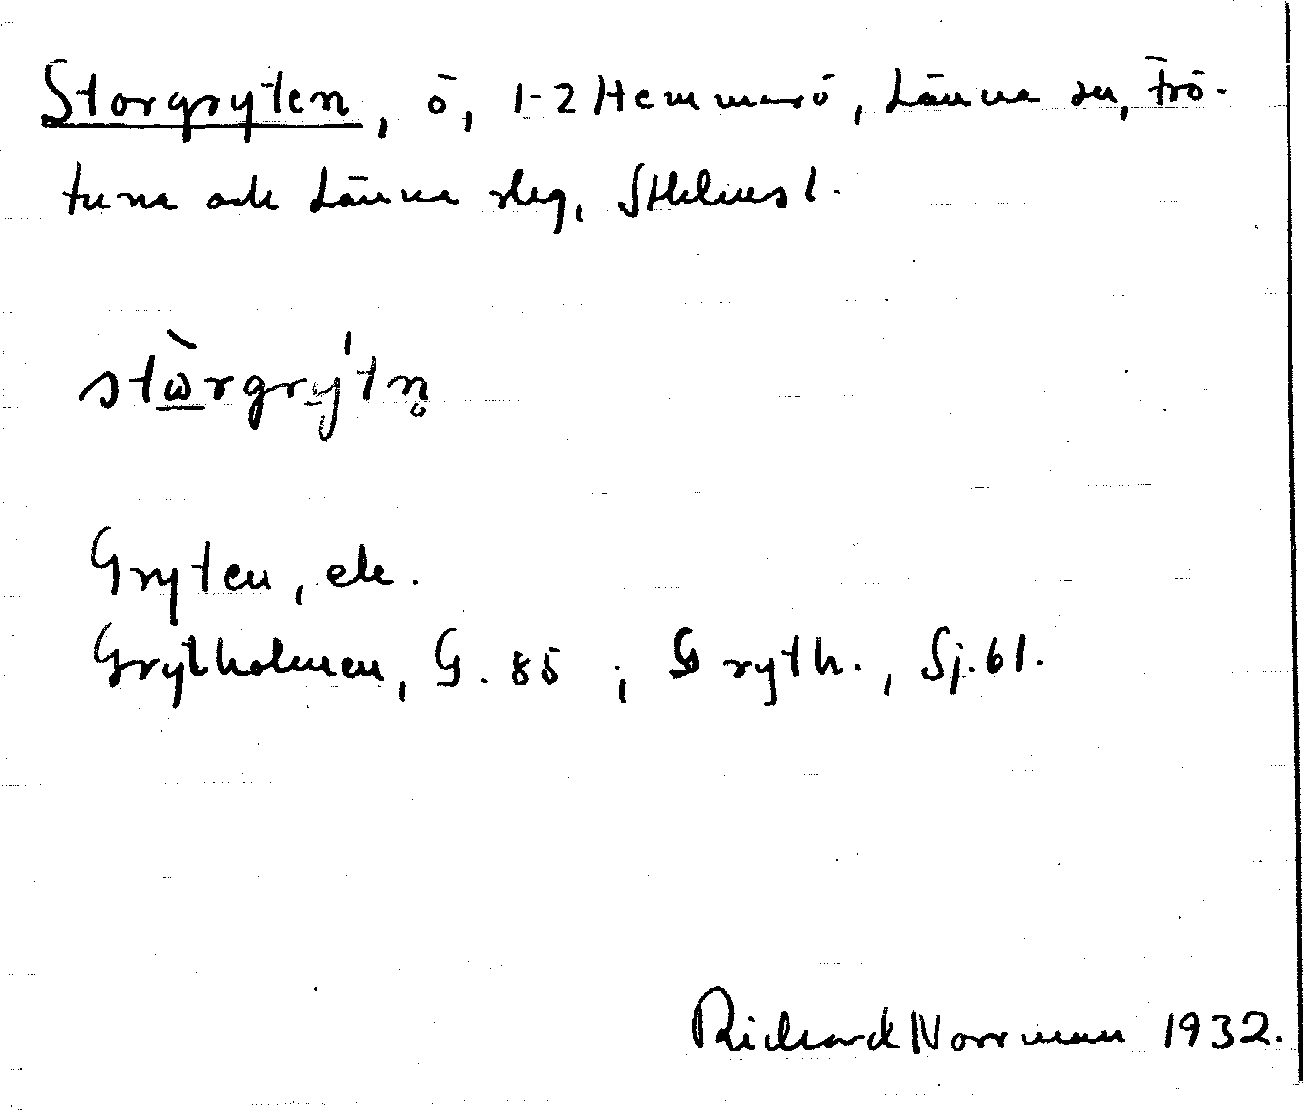 Storgryten, ö, 1-2 Hemmarö, Länna sn, Frö-
tuna och Länna slg, Sthlms l.
stὼrgry̍tn̥
Gryten, ek.
Grytholmen, G. 85 ; Gryth., Sj. 61.
Richard Norrman 1932.